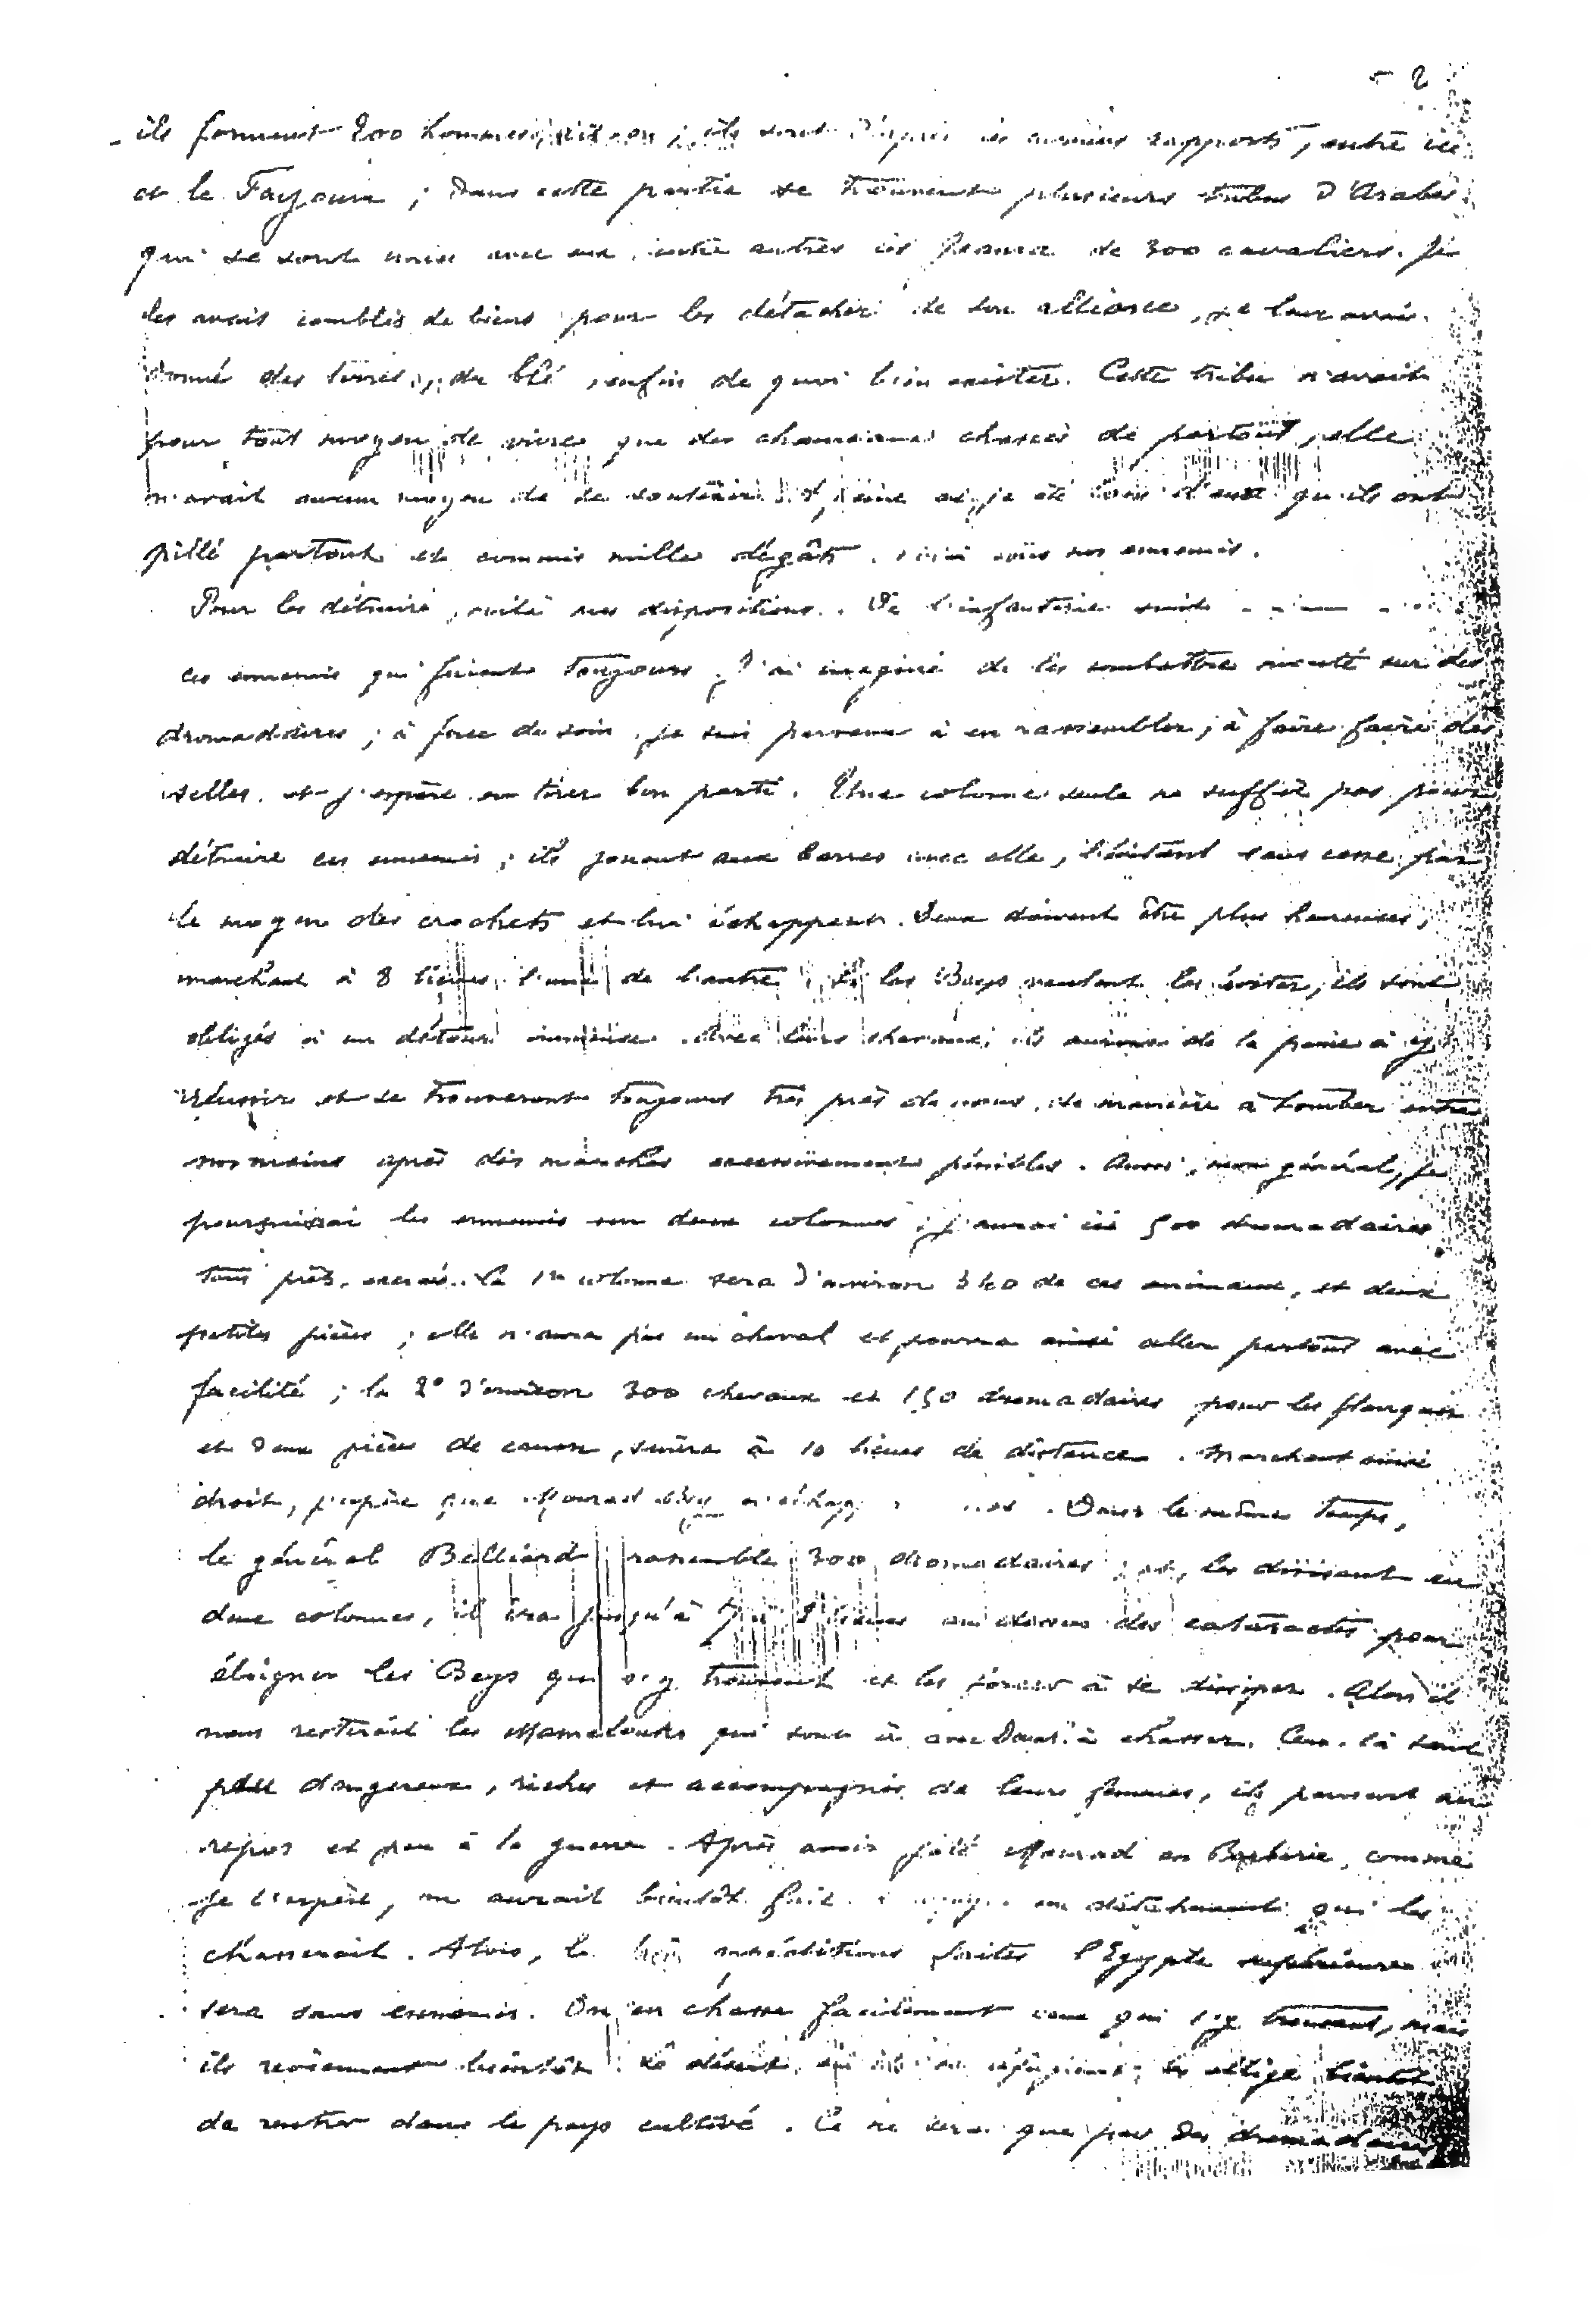 - 2
ils forment 200 hommes ; ils sont d'après les derniers rapports, entre ici
et le Fayoum ; dans cette partie se trouvent plusieurs tribus d'Arabes
qui se sont unies avec eux, entre autres les de 300 cavaliers. Je
les avais comblés de biens pour les détacher de son alliance, je leur avais
donné des terres, du blé, enfin de quoi bien exister. Cette tribu n'avait
pour tout moyen de vivre que des chameaux chassés de partout, elle
n'avait aucun moyen de se soutenir. A peine ai-je été loin d'eux qu'ils ont
pillé partout et commis mille dégâts. Voici tous nos ennemis.
Pour les détruire, voilà mes dispositions. De l'infanterie suit
ces ennemis qui fuient toujours. J'ai imaginé de les combattre monté sur des
dromadaires ; à force de soin, je suis parvenu à en rassembler, à faire faire des
selles, et j'espère en tirer bon parti. Une colonne seule ne suffit pas pour
détruire ces ennemis ; ils jouent aux barres avec elle, l'évitant sans cesse par
le moyen des crochets et lui échappent. Deux doivent être plus heureuses,
marchant à 8 lieues l'une de l'autre ; si les Beys veulent les éviter, ils sont
obligés à un détour immense. Avec leurs chevaux, ils auront de la peine à y
réussir et se trouveront toujours très près de nous, de manière à tomber entre
nos mains après des marches excessivement pénibles. Aussi, mon général, je
poursuivrai les ennemis sur deux colonnes ; j'aurai ici 500 dromadaires
tous prêts. La 1re colonne sera d'environ 340 de ces animaux, et deux
petites pièces ; elle n'aura pas un cheval et pourra ainsi aller partout avec
facilité ; la 2e d'environ 300 chevaux et 150 dromadaires pour les flanquer
et deux pièces de canon, suivra à 10 lieues de distance. Marchant ainsi
droit, j'espère que Mourad Bey . Dans le même temps,
le général Belliard rassemble 300 dromadaires ; et, les divisant en
deux colonnes, il ira jusqu'à lieues au dessus des cataractes pour
éloigner les Beys qui s'y trouvent et les forcer à se dissiper. Alors il
nous resterait les Mamelouks qui sont à chasser. Ceux-là sont
peu dangereux, riches et accompagnés de leurs femmes, ils pensent au
repos et peu à la guerre. Après avoir jeté Mourad en Barbarie, comme
je l'espère, on aurait bientôt fait un détachement qui les
chasserait. Alors, les expéditions faites l'Egypte supérieure
sera sans ennemis. On en chasse facilement ceux qui s'y trouvent, mais
ils reviennent bientôt. Le désert, les oblige bientôt
de rentrer dans le pays cultivé. Ce ne sera que par des dromadaires